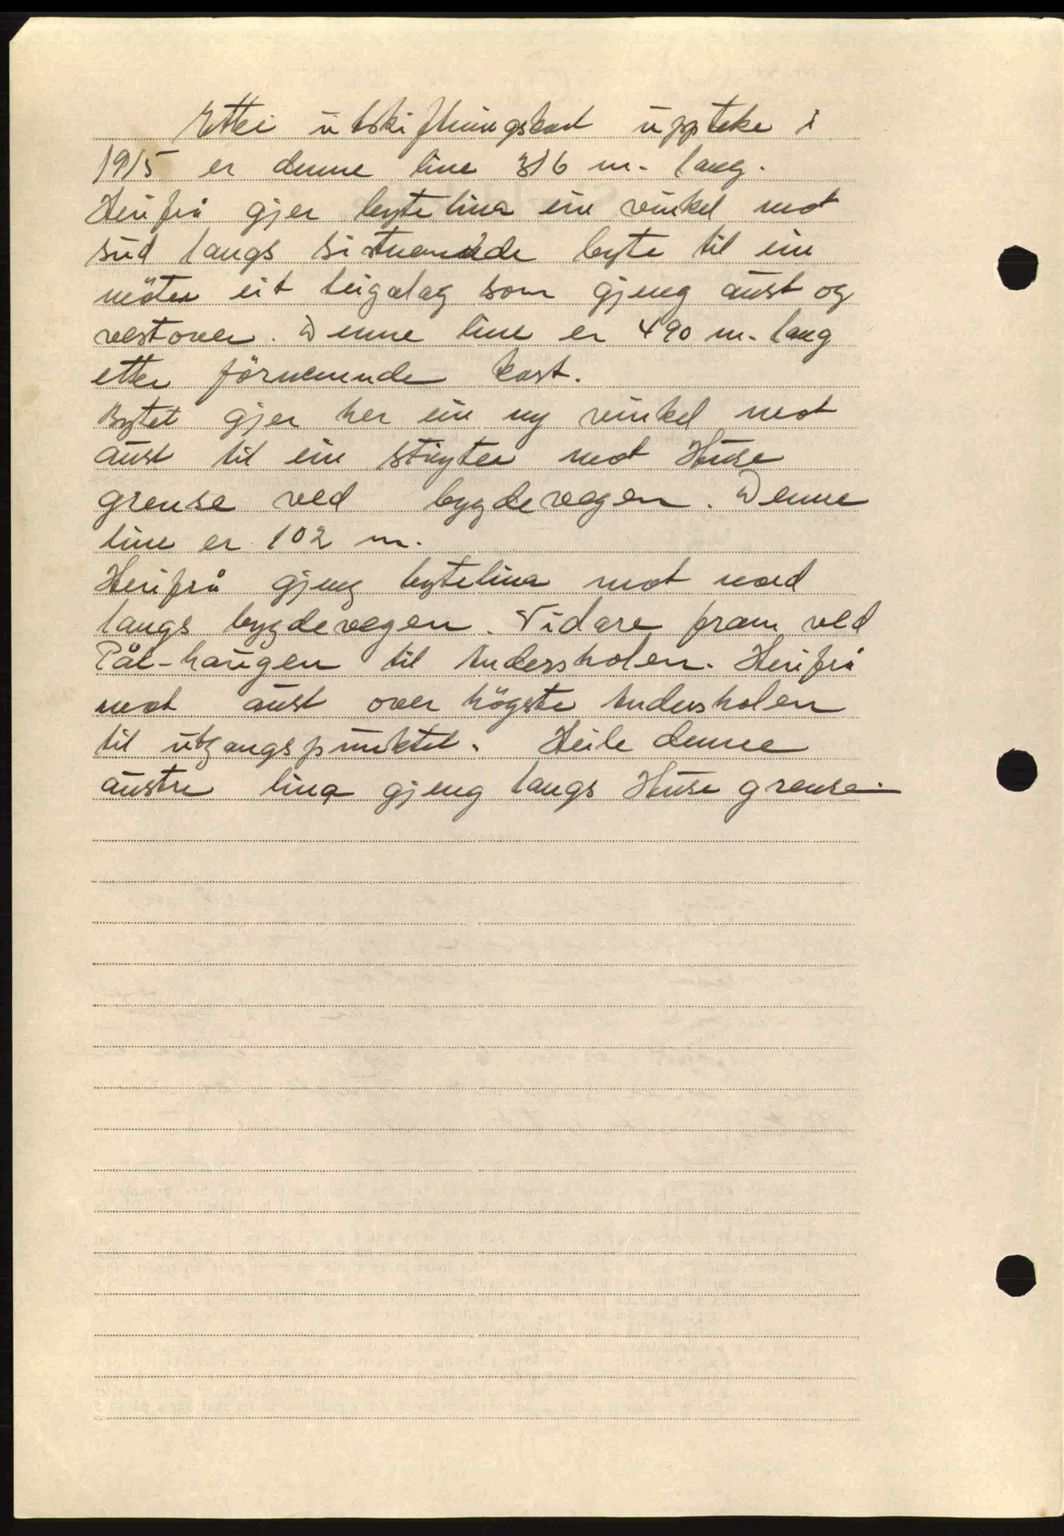 Etter utskiftningskart uppteke i
1915 er denne line 316 m. lang.
Herifrå gjer bytelina ein vinkel mot
sud langs si nde byte til ein
møter eit teigalag som gjeng aust og
vestover. Denne line er 490 m. lang
etter førnemnde kart.
Bytet gjer her ein ny vinkel mot
aust til ein mot Huse
grense ved bygdevegen. Denne
line er 102 m.
Herifrå gjeng bytelina mot nord
langs bygdevegen. Vidare fram ved
Pål-haugen til Andersholen. Herifrå
mot aust over högste Andersholen
til utgangspunktet. Heile denne
austre lina gjeng langs Huse grense.